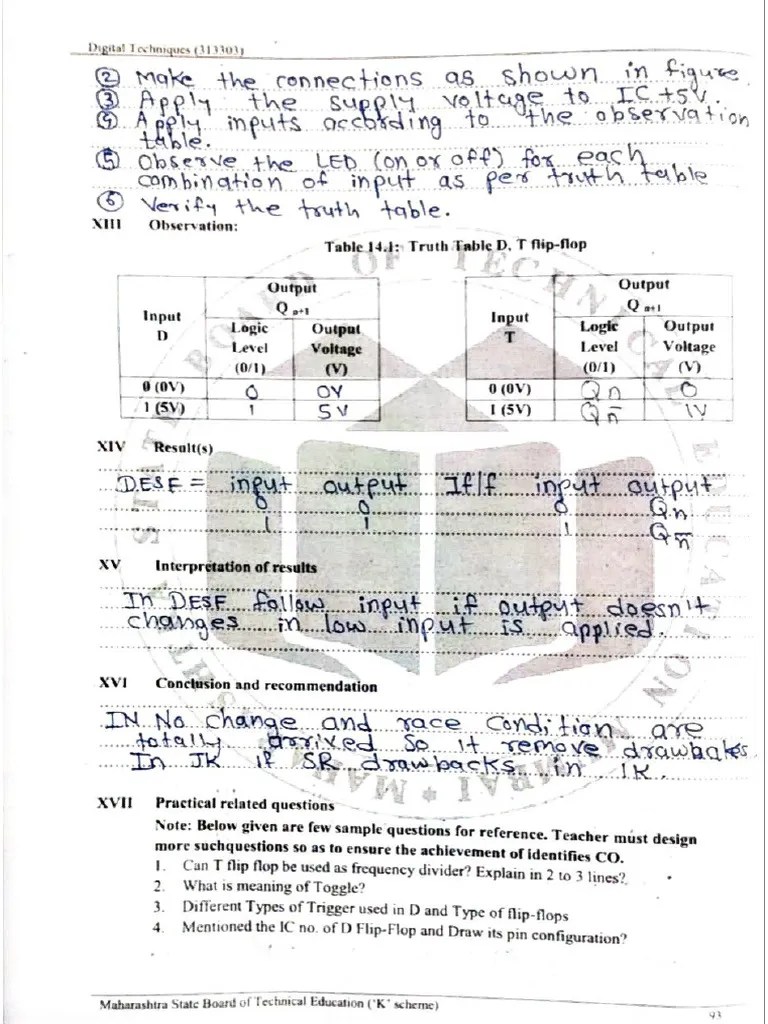 Digital Techniques (313303)
② Make the connections as shown in figure
③ Apply the supply voltage to IC +5V.
④ Apply inputs according to the observation
table.
⑤ Observe the LED (on or off) for each
combination of input as per truth table
⑥ Verify the truth table.
XIII Observation:
Table 14.1: Truth Table D, T flip-flop
Input D Output Q n+1
Logic Level (0/1) Output Voltage (V)
0 (0V) 0 0V
1 (5V) 1 5V
Input T Output Q n+1
Logic Level (0/1) Output Voltage (V)
0 (0V) Qn 0
1 (5V) Qn̅ 1V
XIV Result(s)
D.ESF = input output If/f input output
0 0 0 Qn
1 1 1 Qn̅
XV Interpretation of results
In DESF follow input if output doesn't
changes in low input is applied.
XVI Conclusion and recommendation
IN No change and race condition are
totally arrived so it remove drawbakes
In JK if SR drawbacks in IK.
XVII Practical related questions
Note: Below given are few sample questions for reference. Teacher must design
more suchquestions so as to ensure the achievement of identifies CO.
1. Can T flip flop be used as frequency divider? Explain in 2 to 3 lines?
2. What is meaning of Toggle?
3. Different Types of Trigger used in D and Type of flip-flops
4. Mentioned the IC no. of D Flip-Flop and Draw its pin configuration?
Maharashtra State Board of Technical Education ('K' scheme)
93